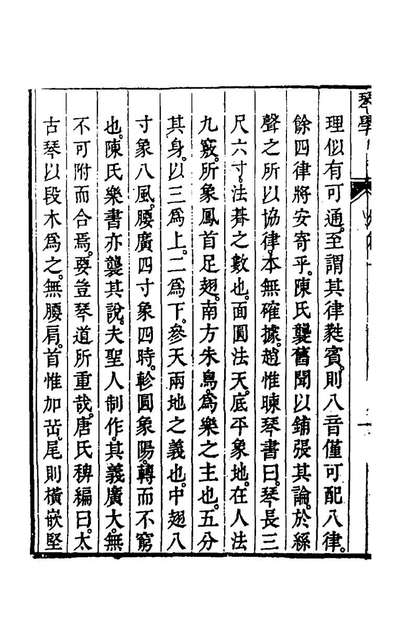 琴學
理似有可通。至謂其律蕤賓。則八音僅可配八律。
餘四律將安寄乎。陳氏襲舊聞以鋪張其論。於絲
聲之所以協律本無確據。趙惟暕琴書曰。琴長三
尺六寸。法朞之數也。面圓法天。底平象地。在人法
九竅。所象鳳首足翅。南方朱鳥。爲樂之主也。五分
其身。以三爲上。二爲下。參天兩地之義也。中翅八
寸象八風。腰廣四寸象四時。軫圓象陽轉而不窮
也。陳氏樂書亦襲其說。夫聖人制作。其義廣大。無
不可附而合焉。要豈琴道所重哉。唐氏稗編曰。太
古琴以段木爲之。無腰肩。首惟加岳。尾則橫嵌堅